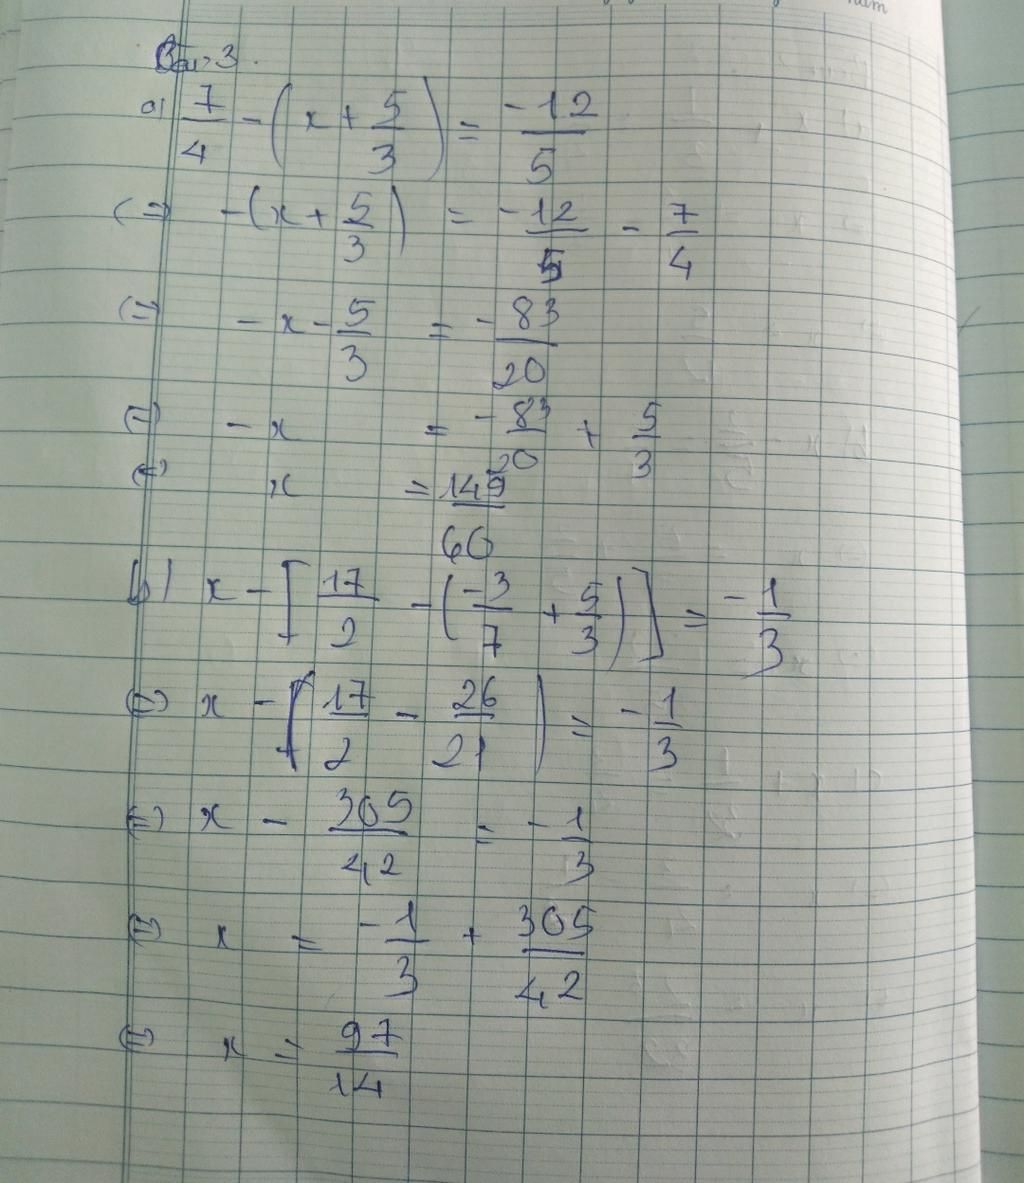 Bài 3.
a) 7/4 - (x + 5/3) = -12/5
(=) -(x + 5/3) = -12/5 - 7/4
(=) -x - 5/3 = -83/20
(=) -x = -83/20 + 5/3
(=) x = 149/60
b) x - [17/2 - (-3/7 + 5/3)] = -1/3
(=) x - [17/2 - 26/21) = -1/3
(=) x - 305/42 = -1/3
(=) x = -1/3 + 305/42
(=) x = 97/14